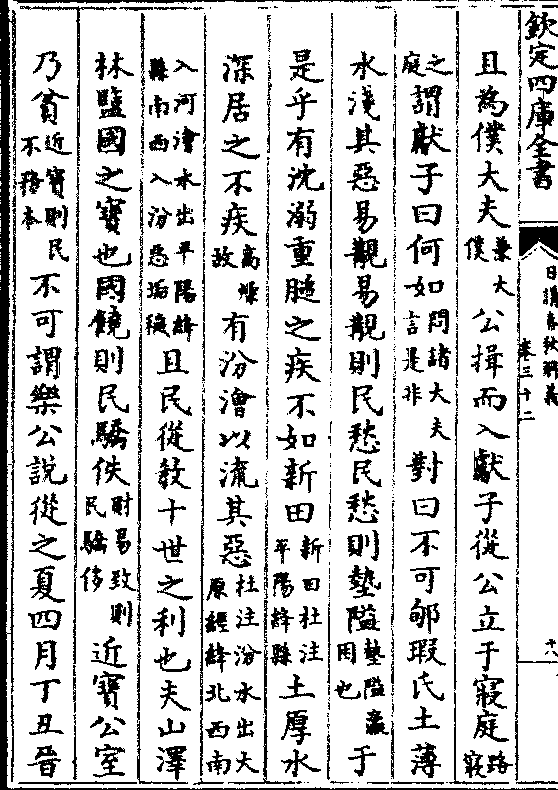 欽定四庫全書
日講春秋解義
卷三十二
十八
且為僕大夫兼大僕公揖而入獻子從公立于寢庭路寢
之庭謂獻子曰何如問諸大夫言是非對曰不可郇瑕氏土薄
水淺其惡易覯易覯則民愁民愁則墊隘墊隘羸困也于
是乎有沈溺重膇之疾不如新田新田杜注平陽絳縣土厚水
深居之不疾高燥故有汾澮以流其惡杜注汾水出大原經絳北西南
入河澮水出平陽絳縣南西入汾惡垢穢且民從教十世之利也夫山澤
林鹽國之寶也國饒則民驕佚財易致則民驕侈近寶公室
乃貧近寶則民不務本不可謂樂公說從之夏四月丁丑晉